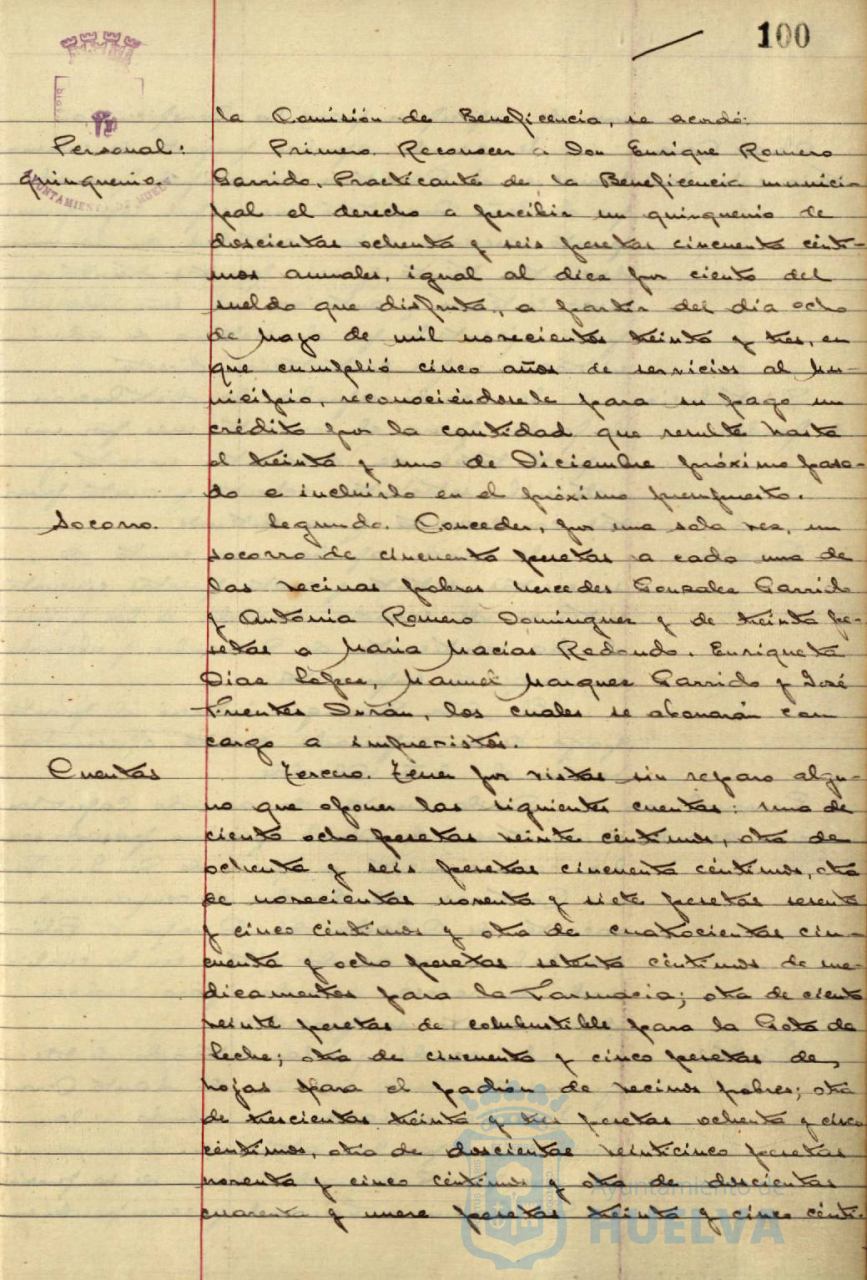 100
la Comisión de Beneficencia, se acordó:
Personal:
Primero. Reconocer a Don Enrique Romero
quinquenio.
Garrido, Practicante de la Beneficencia munici-
pal el derecho a percibir un quinquenio de
doscientas ochenta y seis pesetas cincuenta cénti-
mos anuales, igual al diez por ciento del
sueldo que disfruta, a partir del día ocho
de Mayo de mil novecientos treinta y tres, en
que cumplió cinco años de servicios al Mu-
nicipio, reconociéndosele para su pago un
crédito por la cantidad que resulte hasta
el treinta y uno de Diciembre próximo pasa-
do e incluirlo en el próximo presupuesto.
Socorro.
Segundo. Conceder, por una sola vez, un
socorro de cincuenta pesetas a cada una de
las vecinas pobres Mercedes Gonzalez Garrido
y Antonia Romero Dominguez y de treinta pe-
setas a Maria Macías Redondo, Enriqueta
Diaz López, Manuel Marquez Garrido y José
Fuentes Durán, los cuales se abonarán con
cargo a imprevistos.
Cuentas
Tercero. Tener por vistas sin reparo algu-
no que oponer las siguientes cuentas: una de
ciento ocho pesetas veinte céntimos, otra de
ochenta y seis pesetas cincuenta céntimos, otra
de novecientas noventa y siete pesetas sesenta
y cinco céntimos y otra de cuatrocientas cin-
cuenta y ocho pesetas setenta céntimos de me-
dicamentos para la Farmacia; otra de ciento
veinte pesetas de combustible para la Gota de
leche; otra de cincuenta y cinco pesetas de
hojas para el padrón de vecinos pobres; otra
de trescientas treinta y tres pesetas ochenta y cinco
céntimos, otra de doscientas veinticinco pesetas
noventa y cinco céntimos y otra de doscientas
cuarenta y nueve pesetas treinta y cinco cénti-
Ayuntamiento de
HUELVA